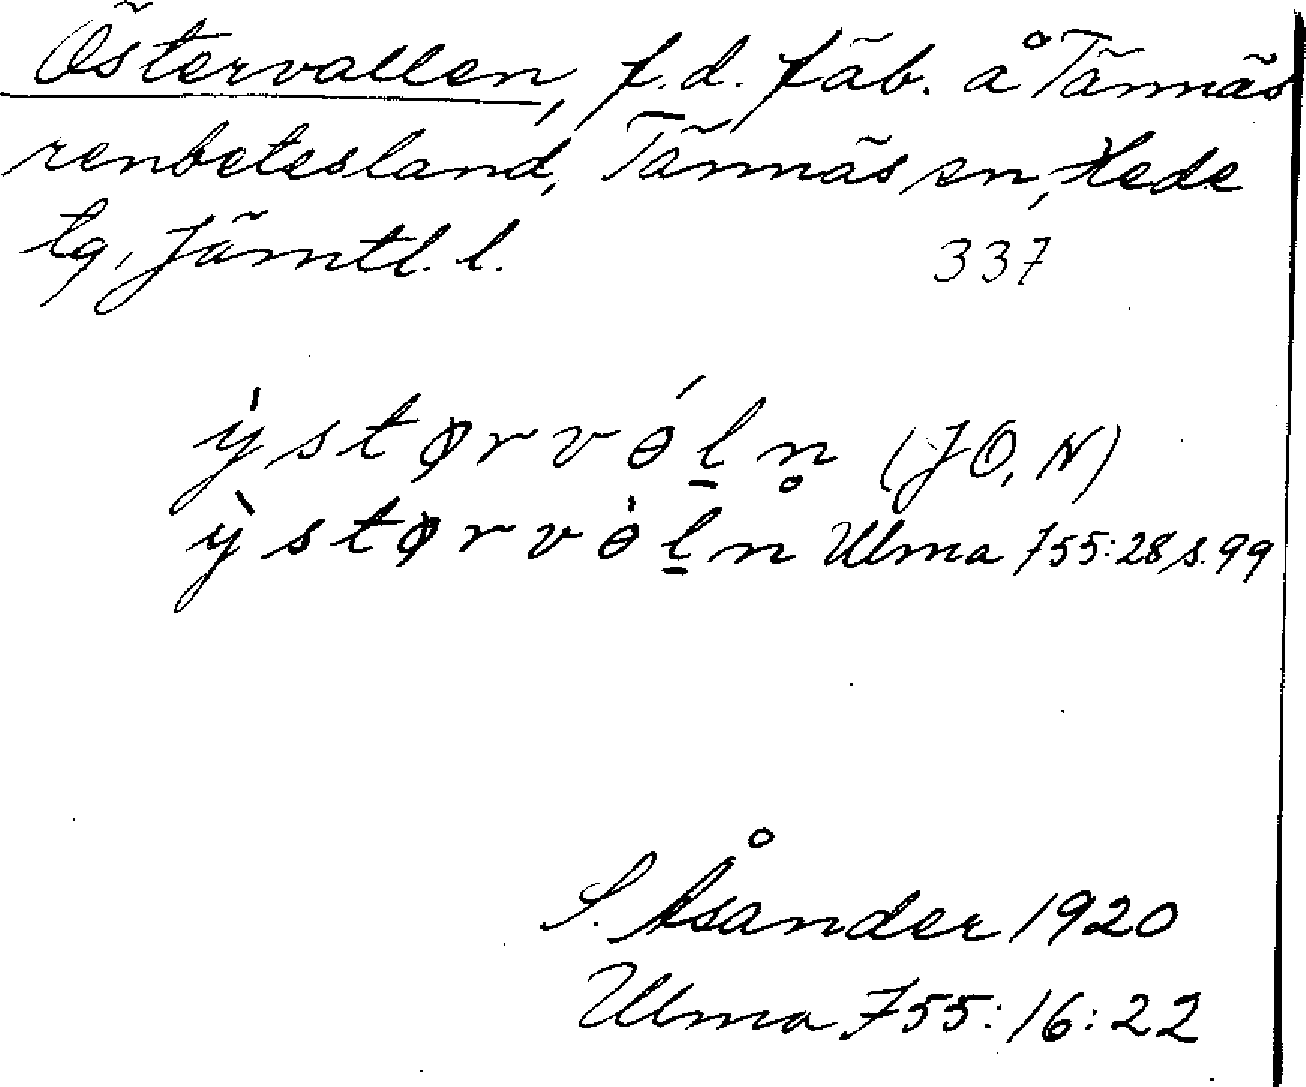 Östervallen, f.d. fäb. å Tännäs
renbetesland, Tännäs sn, Hede
tg, Jämtl. l. 337
ỳstørvɵ́l̠n̥ (JO, N)
ỳstørvɵ̀l̠n Ulma 755:28, s. 99
S. Åsander 1920
Ulma 755:16:22